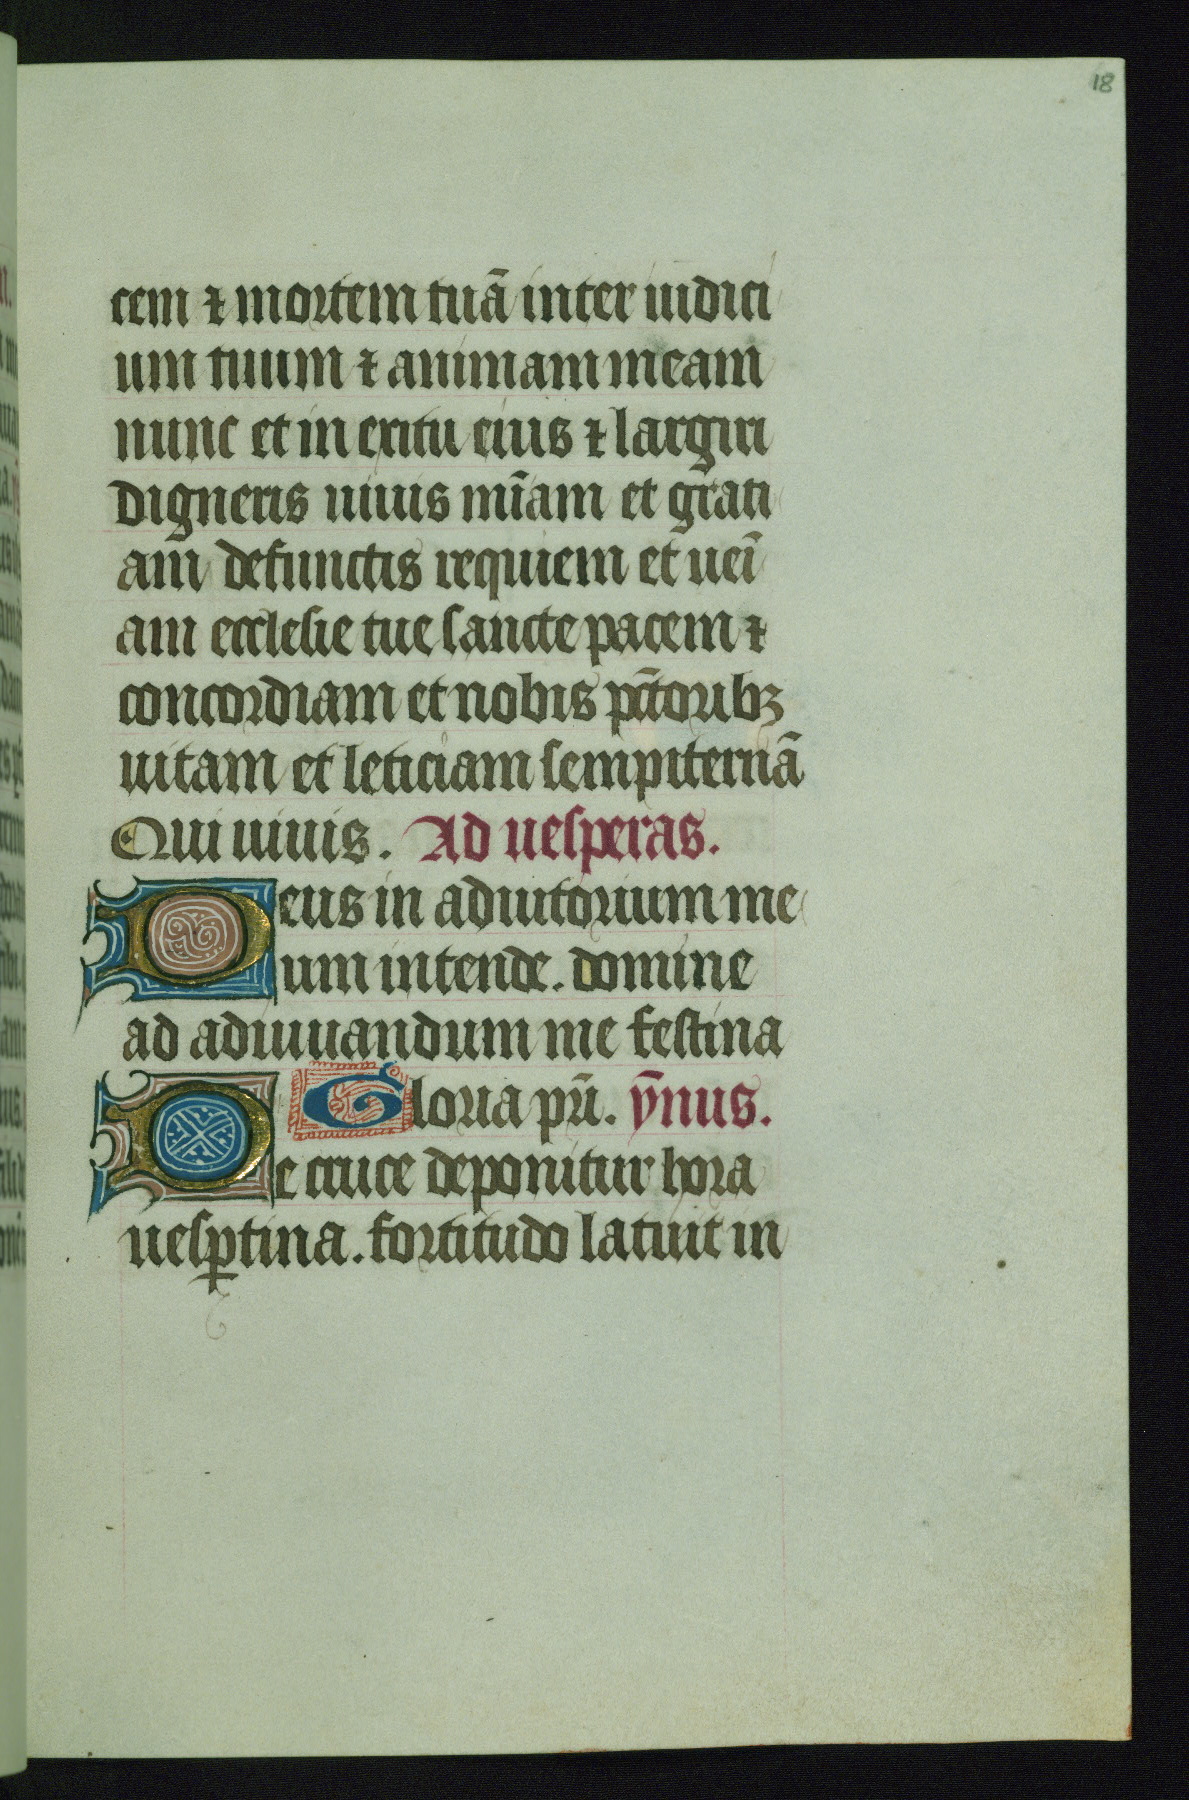 18
cem ⁊ mortem tuā inter iudici
um tuum ⁊ animam meam
nunc et in exitu eius ⁊ largiri
digneris uiuis mīam et grati
am defunctis requiem et ueī
am ecclesie tue sancte pacem ⁊
concordiam et nobis pc̄toribꝫ
uitam et leticiam sempiternā
Qui uiuis. Ad uesperas.
Deus in adiutorium me
um intende. domine
ad adiuuandum me festina
Gloria pr̄i. ȳnus.
De cruce deponitur hora
uesꝑtina. fortitudo latuit in